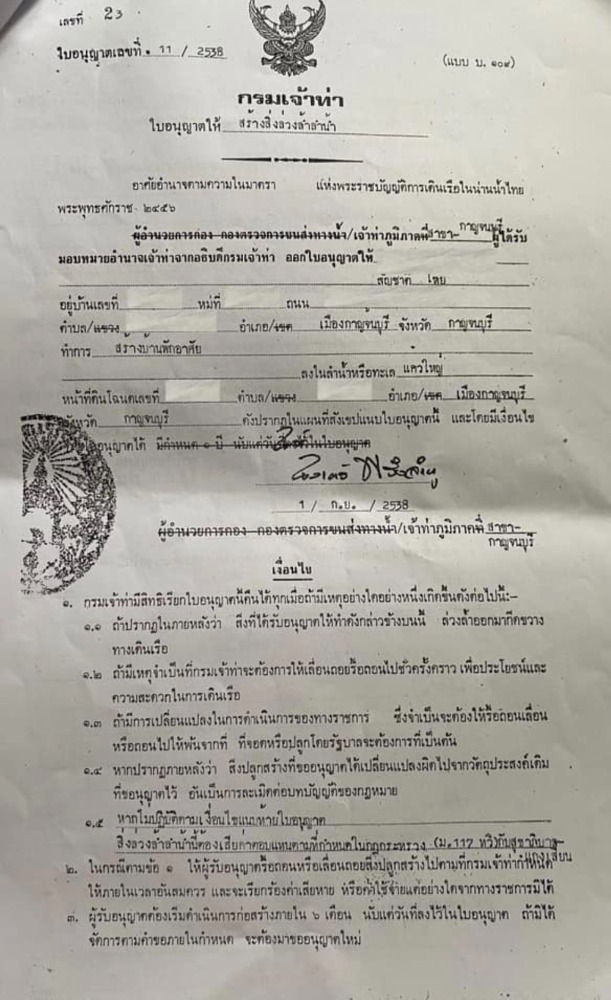 เลขที่ 23
ใบอนุญาตเลขที่ 11 / 2538
(แบบ บ. ๑๐๙)
กรมเจ้าท่า
ใบอนุญาตให้ สร้างสิ่งล่วงล้ำลำน้ำ
อาศัยอำนาจตามความในมาตรา แห่งพระราชบัญญัติการเดินเรือในน่านน้ำไทย
พระพุทธศักราช ๒๔๕๖
ผู้อำนวยการกอง กองตรวจการขนส่งทางน้ำ/เจ้าท่าภูมิภาคที่ สาขา-กาญจนบุรี ผู้ได้รับ
มอบหมายอำนาจเจ้าท่าจากอธิบดีกรมเจ้าท่า ออกใบอนุญาตให้
สัญชาติ ไทย
อยู่บ้านเลขที่ หมู่ที่ ถนน
ตำบล/แขวง อำเภอ/เขต เมืองกาญจนบุรี จังหวัด กาญจนบุรี
ทำการ สร้างบ้านพักอาศัย
ลงในลำน้ำหรือทะเล แควใหญ่
หน้าที่ดินโฉนดเลขที่ ตำบล/แขวง อำเภอ/เขต เมืองกาญจนบุรี
จังหวัด กาญจนบุรี ดังปรากฏในแผนที่สังเขปแนบใบอนุญาตนี้ และโดยมีเงื่อนไข
อนุญาตได้ มีกำหนด ๑ ปี นับแต่วันที่ในใบอนุญาต
1 / ก.ย. / 2538
ผู้อำนวยการกอง กองตรวจการขนส่งทางน้ำ/เจ้าท่าภูมิภาคที่ สาขา-
กาญจนบุรี
เงื่อนไข
๑. กรมเจ้าท่ามีสิทธิเรียกใบอนุญาตนี้คืนได้ทุกเมื่อถ้ามีเหตุอย่างใดอย่างหนึ่งเกิดขึ้นดังต่อไปนี้:-
๑.๑ ถ้าปรากฏในภายหลังว่า สิ่งที่ได้รับอนุญาตให้ทำดังกล่าวข้างบนนี้ ล่วงล้ำออกมากีดขวาง
ทางเดินเรือ
๑.๒ ถ้ามีเหตุจำเป็นที่กรมเจ้าท่าจะต้องการให้เลื่อนถอยรื้อถอนไปชั่วครั้งคราว เพื่อประโยชน์และ
ความสะดวกในการเดินเรือ
๑.๓ ถ้ามีการเปลี่ยนแปลงในการดำเนินการของทางราชการ ซึ่งจำเป็นจะต้องให้รื้อถอนเลื่อน
หรือถอนไปให้พ้นจากที่ ที่จอดหรือปลูกโดยรัฐบาลจะต้องการที่เป็นต้น
๑.๔ หากปรากฏภายหลังว่า สิ่งปลูกสร้างที่ขออนุญาตได้เปลี่ยนแปลงผิดไปจากวัตถุประสงค์เดิม
ที่ขออนุญาตไว้ อันเป็นการละเมิดต่อบทบัญญัติของกฎหมาย
๑.๕ หากไม่ปฏิบัติตามเงื่อนไขแนบท้ายใบอนุญาต
สิ่งล่วงล้ำลำน้ำนี้ต้องเสียค่าตอบแทนตามที่กำหนดในกฎกระทรวง (ม.117 ทวิ)กับสุขาภิบาล
๒. ในกรณีตามข้อ ๑ ให้ผู้รับอนุญาตรื้อถอนหรือเลื่อนถอยสิ่งปลูกสร้างไปตามที่กรมเจ้าท่ากำหนด
ให้ภายในเวลาอันสมควร และจะเรียกร้องค่าเสียหาย หรือค่าใช้จ่ายแต่อย่างใดจากทางราชการมิได้
๓. ผู้รับอนุญาตต้องเริ่มดำเนินการก่อสร้างภายใน ๖ เดือน นับแต่วันที่ลงไว้ในใบอนุญาต ถ้ามิได้
จัดการตามคำขอภายในกำหนด จะต้องมาขออนุญาตใหม่